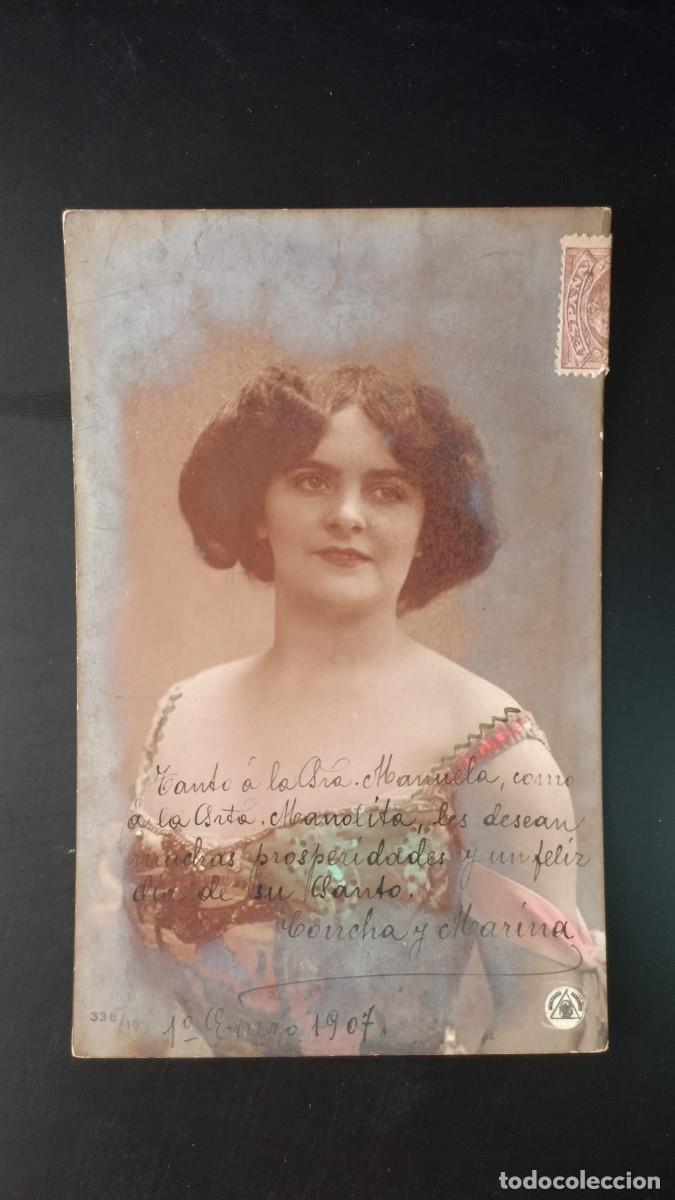 ESPAÑA
Tanto á la Sra. Manuela, como
á la Srta. Manolita, les desean
muchas prosperidades y un feliz
dia de su Santo.
Concha y Marina
336/10
1º Enero 1907.
todocoleccion